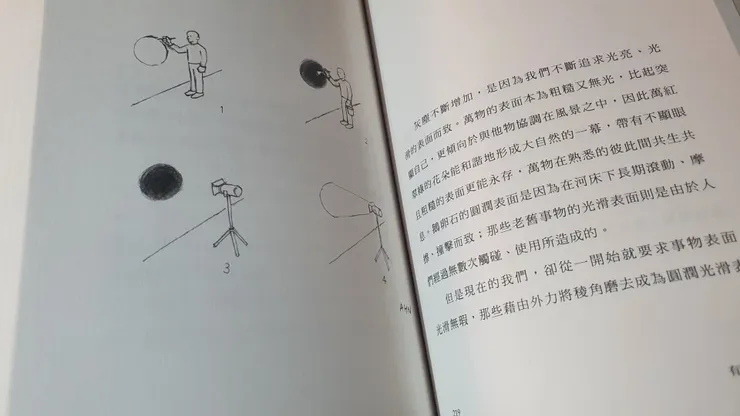 1
2
3
4
AHN
灰塵不斷增加，是因為我們不斷追求光亮、光
滑的表面而致。萬物的表面本為粗糙又無光，比起突
顯自己，更傾向於與他物協調在風景之中，因此萬紅
翠綠的花朵能和諧地形成大自然的一幕，帶有不顯眼
且粗糙的表面更能永存，萬物在熟悉的彼此間共生共
息。鵝卵石的圓潤表面是因為在河床下長期滾動、摩
擦、撞擊而致；那些老舊事物的光滑表面則是由於人
們經過無數次觸碰、使用所造成的。
但是現在的我們，卻從一開始就要求事物表面
光滑無瑕，那些藉由外力將稜角磨去成為圓潤光滑表
有
219